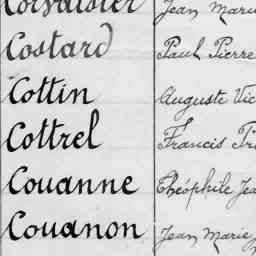 Corvaisier Jean Marie
Costard Paul Pierre
Cottin Auguste Vic
Cottrel Francis
Couanne Théophile Jea
Couanon Jean Marie